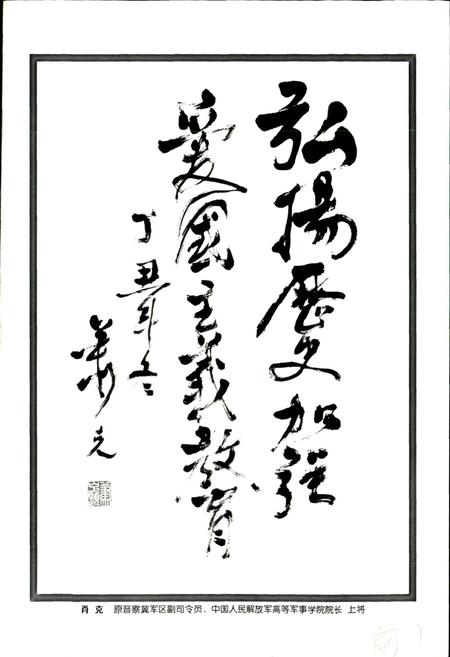 弘揚歷史加强
愛國主義教育
丁丑年冬
蕭克
肖克 原晋察冀军区副司令员、中国人民解放军高等军事学院院长 上将